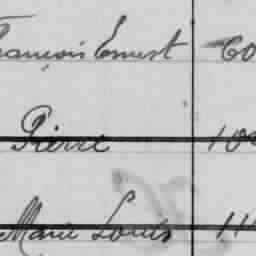 François Ernest 60
Pierre 100
Marie Louis 11